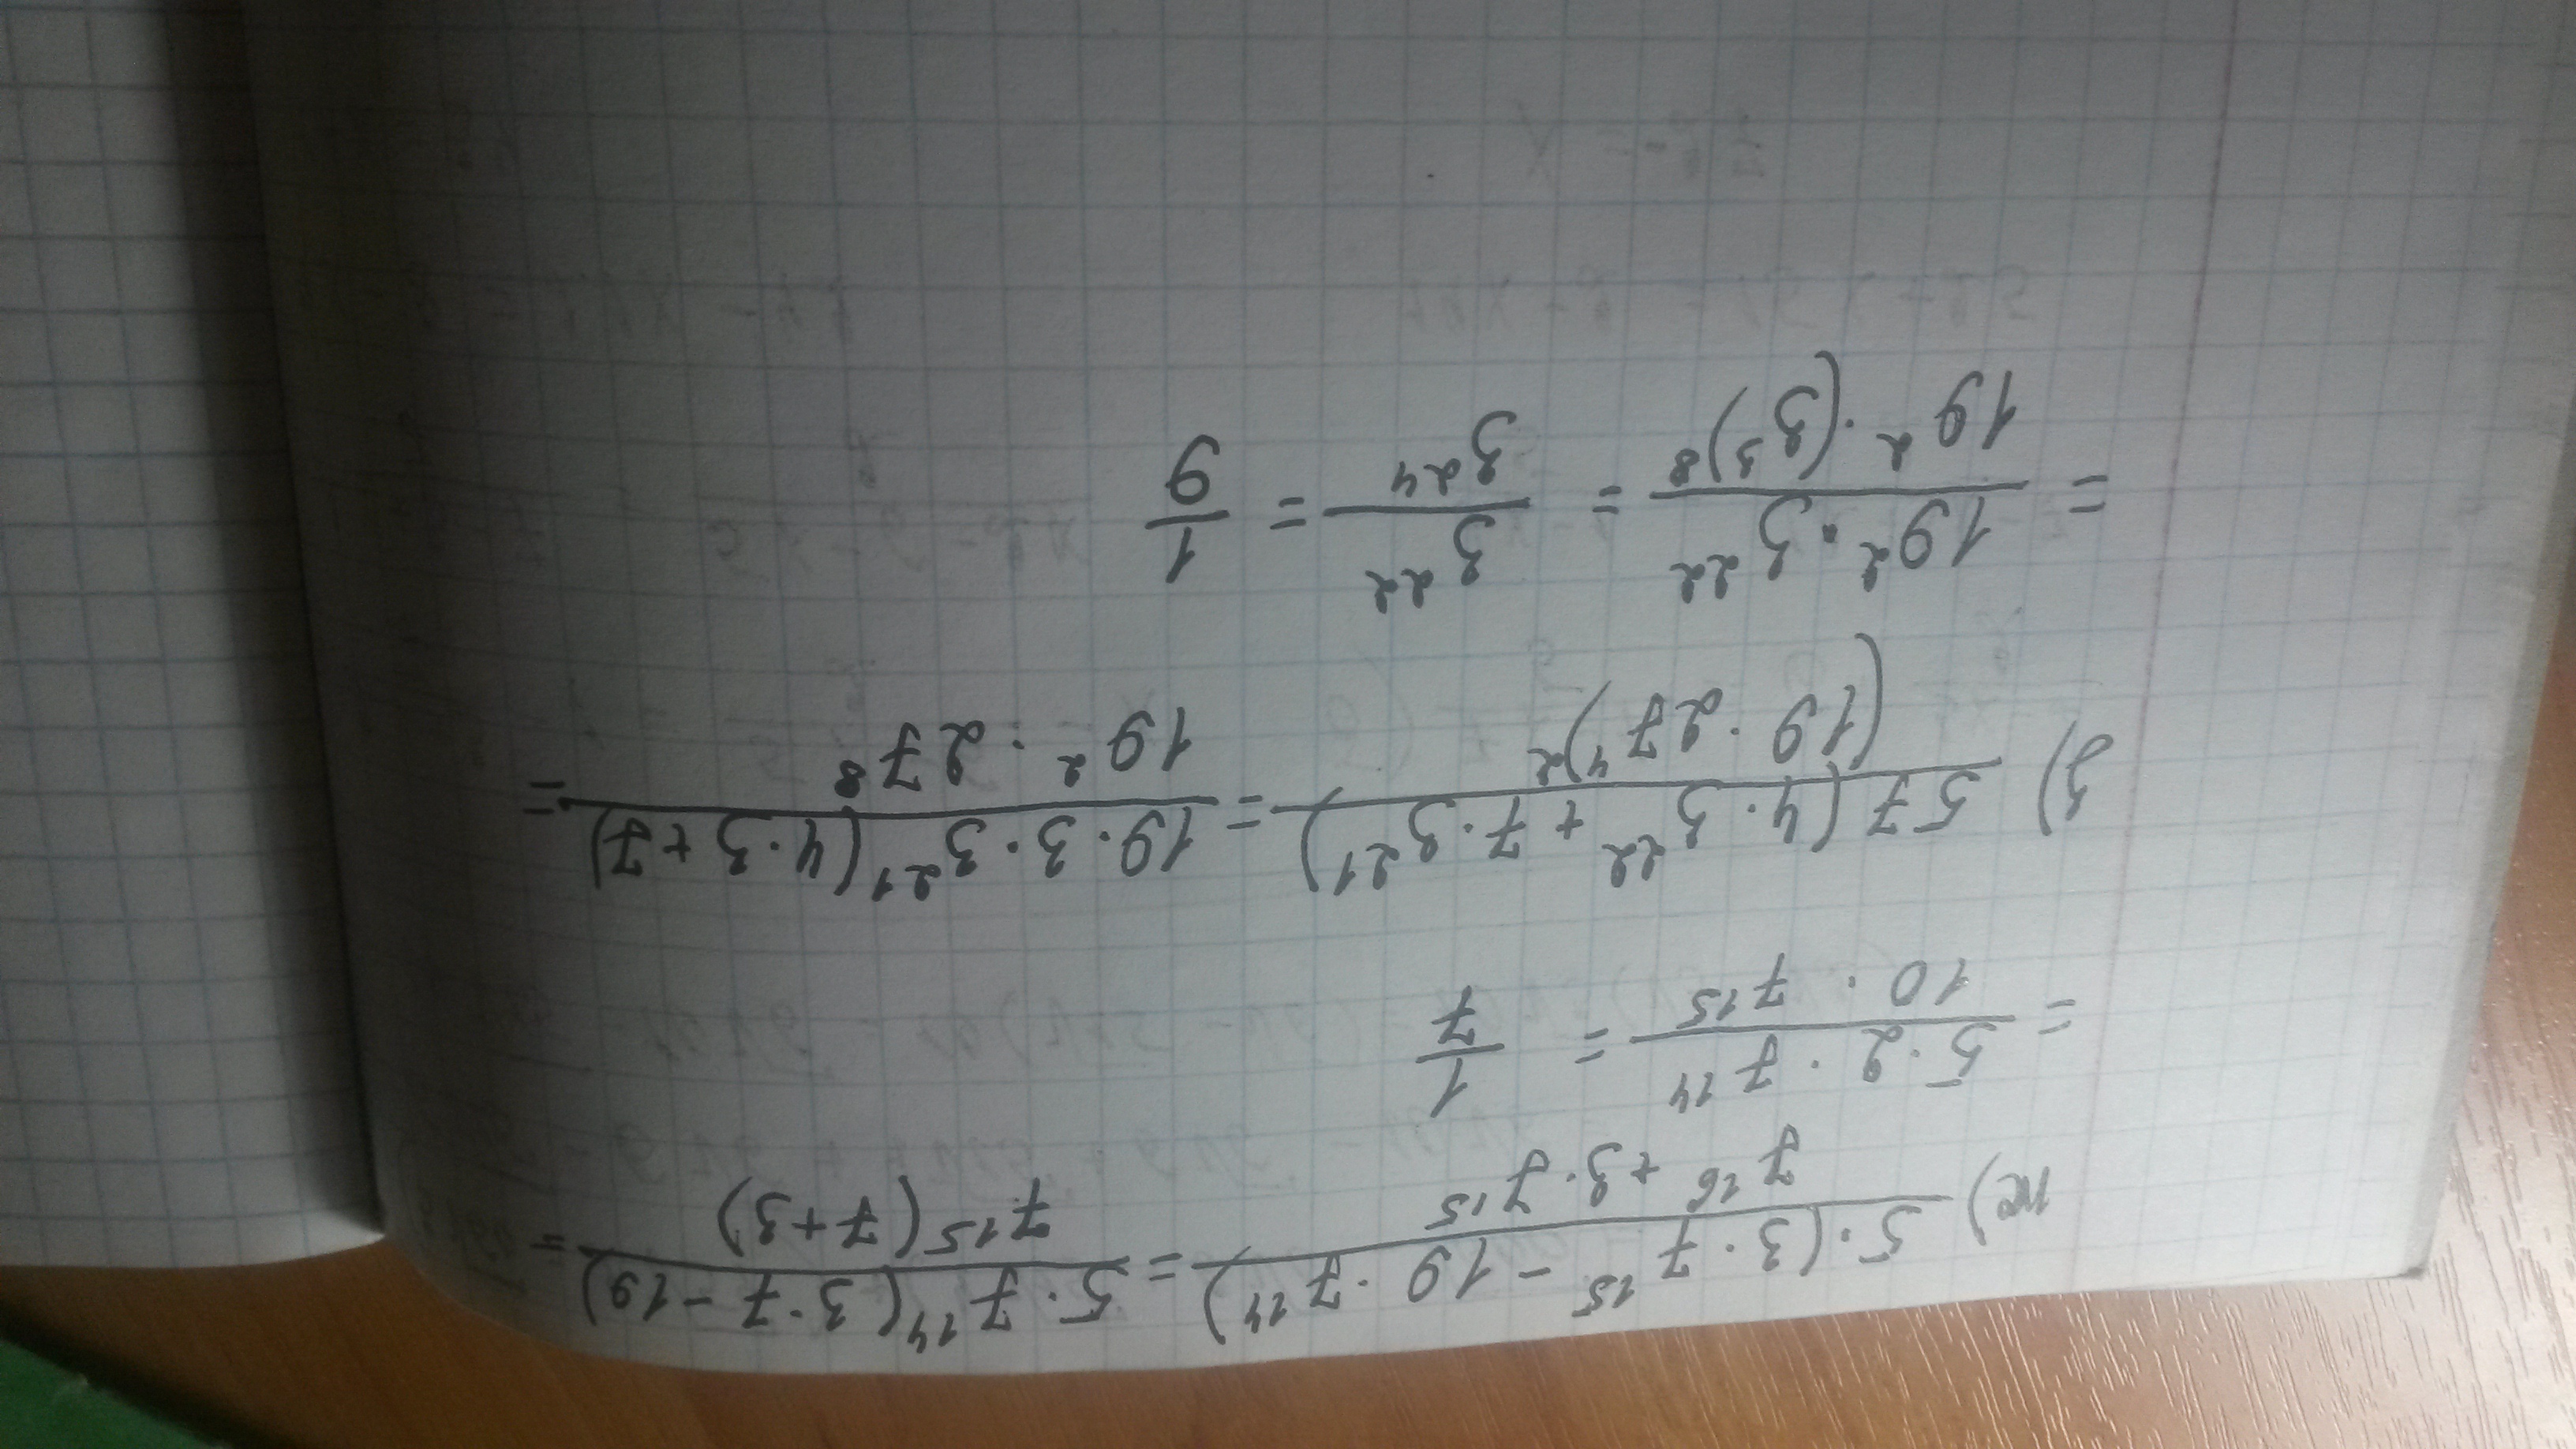 ж) 5·(3·7¹⁵ − 19·7¹⁴) / (7¹⁶ + 3·7¹⁵) = 5·7¹⁴(3·7 − 19) / 7¹⁵(7+3) =
= 5·2·7¹⁴ / 10·7¹⁵ = 1/7
з) 57(4·3²² + 7·3²¹) / (19·27⁴)² = 19·3·3²¹(4·3+7) / 19²·27⁸ =
= 19²·3²² / 19²·(3³)⁸ = 3²² / 3²⁴ = 1/9